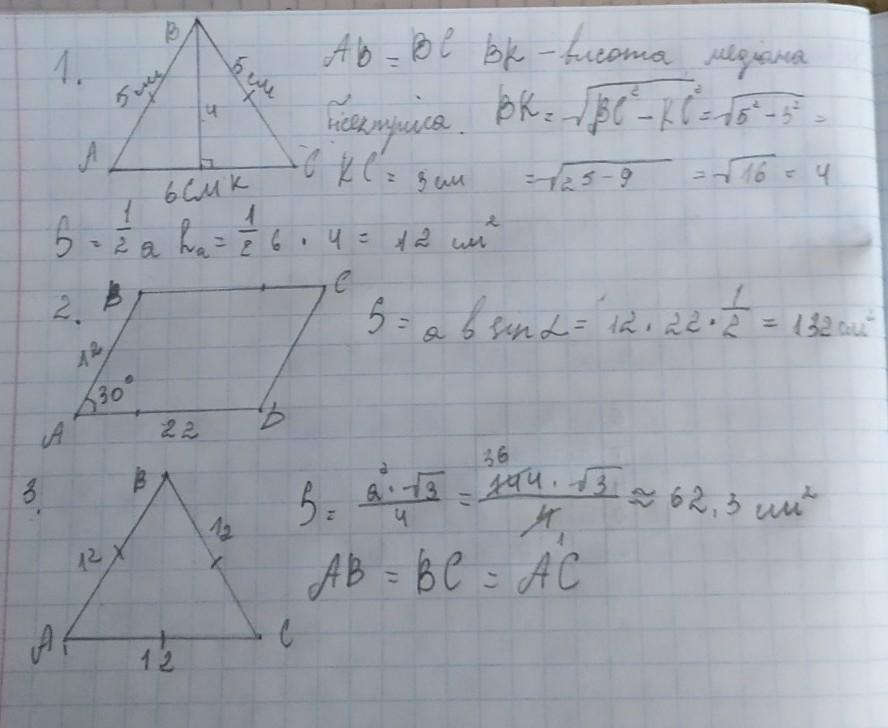 1. B
5 см 5 см
4
A C
6 см K
AB = BC BK - висота медіана
бісектриса. BK = √BC² - KC² = √5² - 3² =
KC = 3 см = √25 - 9 = √16 = 4
S = 1/2 a hₐ = 1/2 6 · 4 = 12 см²
2. B C
12 30°
A 22 D
S = a b sin α = 12 · 22 · 1/2 = 132 см²
3. B
12 12
A C
12
S = a² · √3 / 4 = 36 144 · √3 / 4 ≈ 62,3 см²
AB = BC = AC